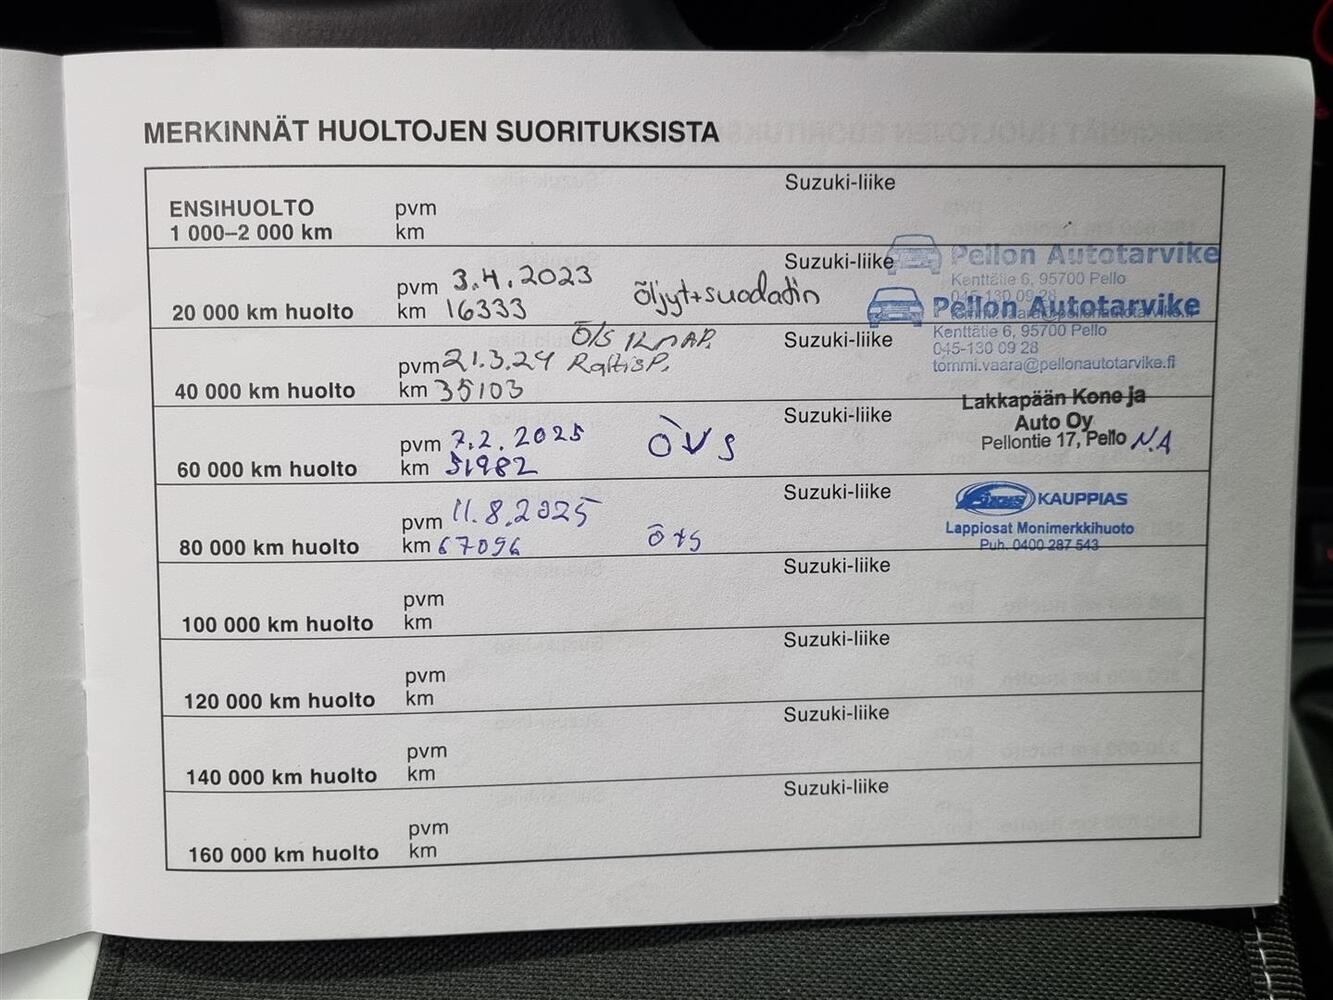 MERKINNÄT HUOLTOJEN SUORITUKSISTA
ENSIHUOLTO
1 000–2 000 km
pvm
km
Suzuki-liike
20 000 km huolto
pvm 3.4.2023
km 16333
öljyt+suodatin
Suzuki-liike
Pellon Autotarvike
Kenttätie 6, 95700 Pello
045-130 09 28
Pellon Autotarvike
Kenttätie 6, 95700 Pello
045-130 09 28
tommi.vaara@pellonautotarvike.fi
40 000 km huolto
Ö/S
pvm 21.3.24
km 35103
Suzuki-liike
60 000 km huolto
pvm 7.2.2025
km 51982
ÖVS
Suzuki-liike
Lakkapään Kone ja
Auto Oy
Pellontie 17, Pello N.A
80 000 km huolto
pvm 11.8.2025
km 67096
Ö+S
Suzuki-liike
KAUPPIAS
Lappiosat Monimerkkihuoto
Puh. 0400 287 543
100 000 km huolto
pvm
km
Suzuki-liike
120 000 km huolto
pvm
km
Suzuki-liike
140 000 km huolto
pvm
km
Suzuki-liike
160 000 km huolto
pvm
km
Suzuki-liike